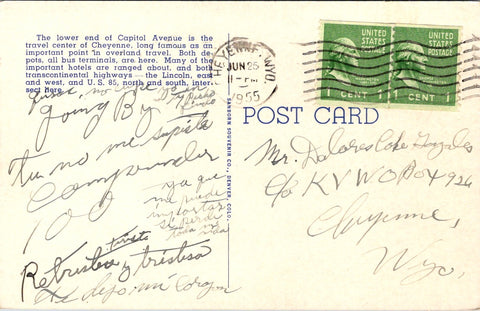 The lower end of Capitol Avenue is the
travel center of Cheyenne, long famous as an
important point in overland travel. Both de-
pots, all bus terminals, are here. Many of the
important hotels are ranged about, and both
transcontinental highways — the Lincoln, east
and west, and U.S. 85, north and south, inter-
sect here.
going By
tu no me supiste
Comprender
100
ya que
me puede
importar
se pierde
toda
y tristesa
dejo mi Corazon
SANBORN SOUVENIR CO., DENVER, COLO.
CHEYENNE WYO.
JUN 25
11-PM
1955
UNITED
STATES
POSTAGE
1 CENT
UNITED
STATES
POSTAGE
1 CENT
POST CARD
Mr.
c/o KVWO Box 926
Cheyenne,
Wyo.